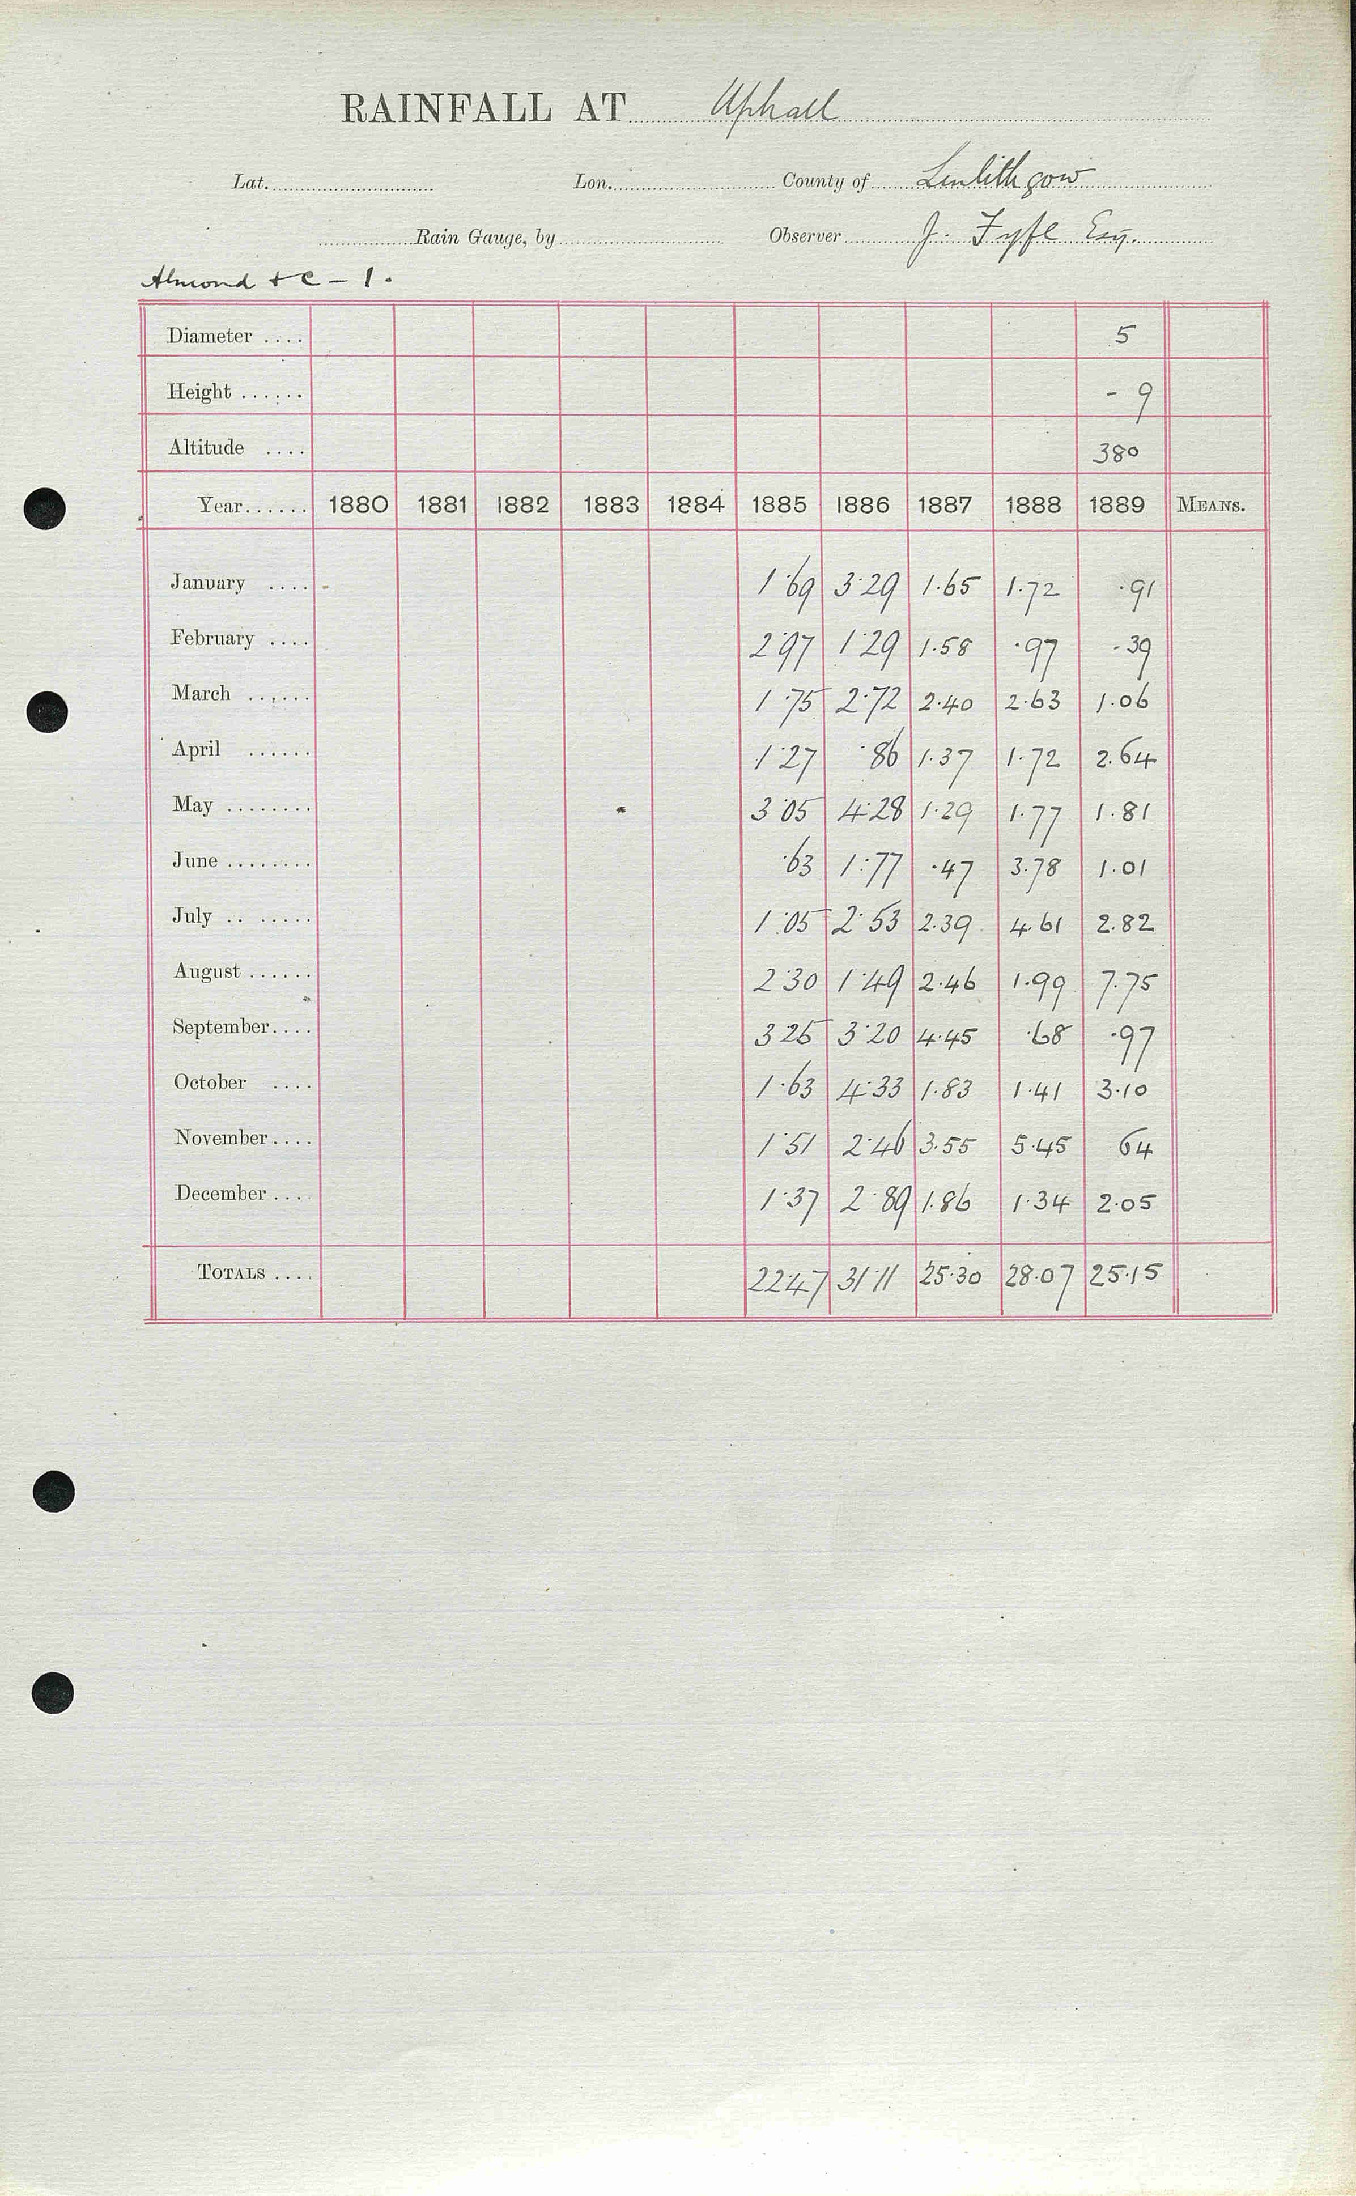 RAINFALL AT Uphall
Lat. Lon. County of Linlithgow
Rain Gauge, by Observer J. Fyfe Esq.
Almond & C - 1.
Diameter .... 5
Height ...... - 9
Altitude .... 380
Year...... 1880 1881 1882 1883 1884 1885 1886 1887 1888 1889 MEANS.
January .... 1.69 3.29 1.65 1.72 .91
February .... 2.97 1.29 1.58 .97 .39
March ...... 1.75 2.72 2.40 2.63 1.06
April ...... 1.27 .86 1.37 1.72 2.64
May ........ 3.05 4.28 1.29 1.77 1.81
June ........ .63 1.77 .47 3.78 1.01
July .. ..... 1.05 2.53 2.39 4.61 2.82
August ...... 2.30 1.49 2.46 1.99 7.75
September.... 3.25 3.20 4.45 .68 .97
October .... 1.63 4.33 1.83 1.41 3.10
November.... 1.51 2.46 3.55 5.45 64
December .... 1.37 2.89 1.86 1.34 2.05
TOTALS .... 22.47 31.11 25.30 28.07 25.15